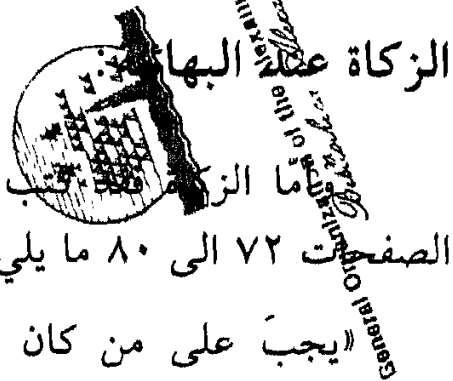 الزكاة عند البهائية:
أما الزكاة فقد كتب
الصفحات ٧٢ الى ٨٠ ما يلي
«يجبَ على من كان
General Organization of the Alexan